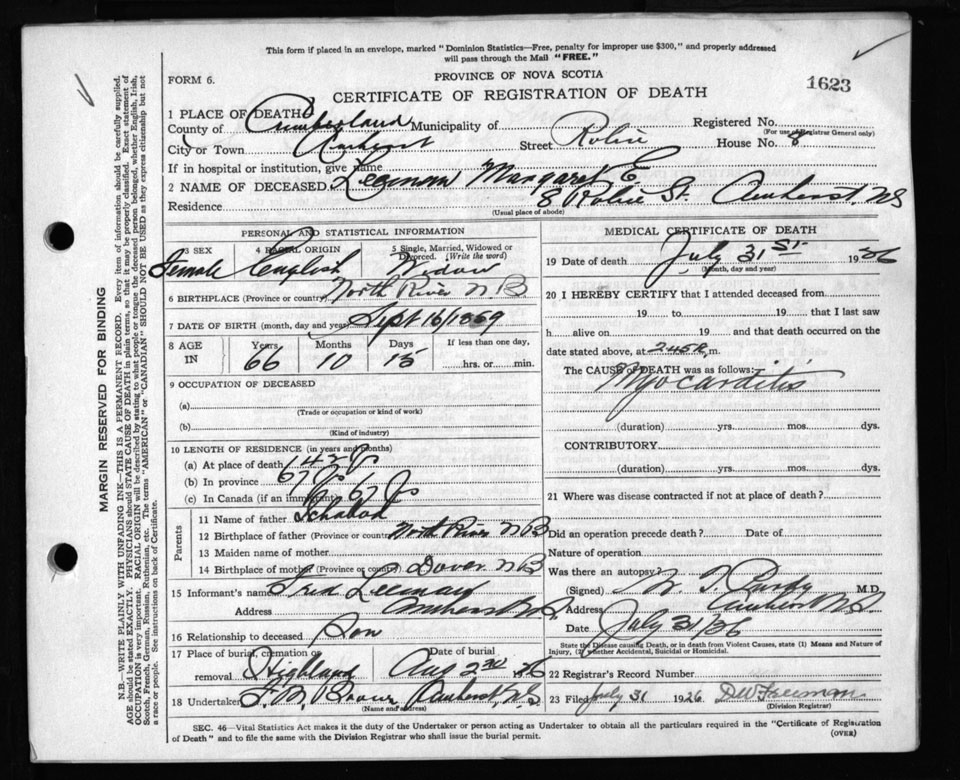 This form if placed in an envelope, marked "Dominion Statistics—Free, penalty for improper use $300," and properly addressed
will pass through the Mail "FREE."
FORM 6.
PROVINCE OF NOVA SCOTIA
1623
CERTIFICATE OF REGISTRATION OF DEATH
1 PLACE OF DEATH
County of Cumberland Municipality of Registered No.
(For use of Registrar General only)
City or Town Amherst Street House No. 8
If in hospital or institution, give name
2 NAME OF DECEASED Margaret E
Residence 8 St. Amherst, NS
(Usual place of abode)
PERSONAL AND STATISTICAL INFORMATION
3 SEX 4 RACIAL ORIGIN 5 Single, Married, Widowed or Divorced. (Write the word)
Female English Widow
6 BIRTHPLACE (Province or country) North River N B
7 DATE OF BIRTH (month, day and year) Sept 16/1869
8 AGE IN Years Months Days If less than one day,
66 10 15 hrs. or min.
9 OCCUPATION OF DECEASED
(a)
(Trade or occupation or kind of work)
(b)
(Kind of industry)
10 LENGTH OF RESIDENCE (in years and months)
(a) At place of death
(b) In province
(c) In Canada (if an immigrant)
Parents
11 Name of father
12 Birthplace of father (Province or country) North River N B
13 Maiden name of mother
14 Birthplace of mother (Province or country) Dover N B
15 Informant's name Fred
Address Amherst N.S.
16 Relationship to deceased Son
17 Place of burial, cremation or removal Date of burial
Highland Aug 2nd
18 Undertaker Amherst, N.S
(Name and address)
MEDICAL CERTIFICATE OF DEATH
19 Date of death July 31st
(Month, day and year)
20 I HEREBY CERTIFY that I attended deceased from
19 to 19 that I last saw
h alive on 19 and that death occurred on
date stated above, at 2.45 P. m.
The CAUSE of DEATH was as follows:
Myocarditis
(duration) yrs. mos. dys.
CONTRIBUTORY
(duration) yrs. mos. dys.
21 Where was disease contracted if not at place of death?
Did an operation precede death? Date of
Nature of operation
Was there an autopsy?
(Signed) M.D.
Address Amherst N.S.
Date July 31/36
State the Disease causing Death, or in death from Violent Causes, state (1) Means and Nature of
Injury, (2) whether Accidental, Suicidal or Homicidal.
22 Registrar's Record Number
23 Filed July 31 1926 D W Freeman
(Division Registrar)
SEC. 46—Vital Statistics Act makes it the duty of the Undertaker or person acting as Undertaker to obtain all the particulars required in the "Certificate of Registration
of Death" and to file the same with the Division Registrar who shall issue the burial permit.
(OVER)
MARGIN RESERVED FOR BINDING
N.B.—WRITE PLAINLY WITH UNFADING INK—THIS IS A PERMANENT RECORD. Every item of information should be carefully supplied.
AGE should be stated EXACTLY. PHYSICIANS should STATE CAUSE OF DEATH in plain terms, so that it may be properly classified. Exact statement of
OCCUPATION is very important. RACIAL ORIGIN will be described by stating to what people or tongue the deceased person belonged, whether English, Irish,
Scotch, French, German, Russian, Ruthenian, etc. The terms "AMERICAN" or "CANADIAN" SHOULD NOT BE USED as they express citizenship but not
a race or people. See instructions on back of Certificate.